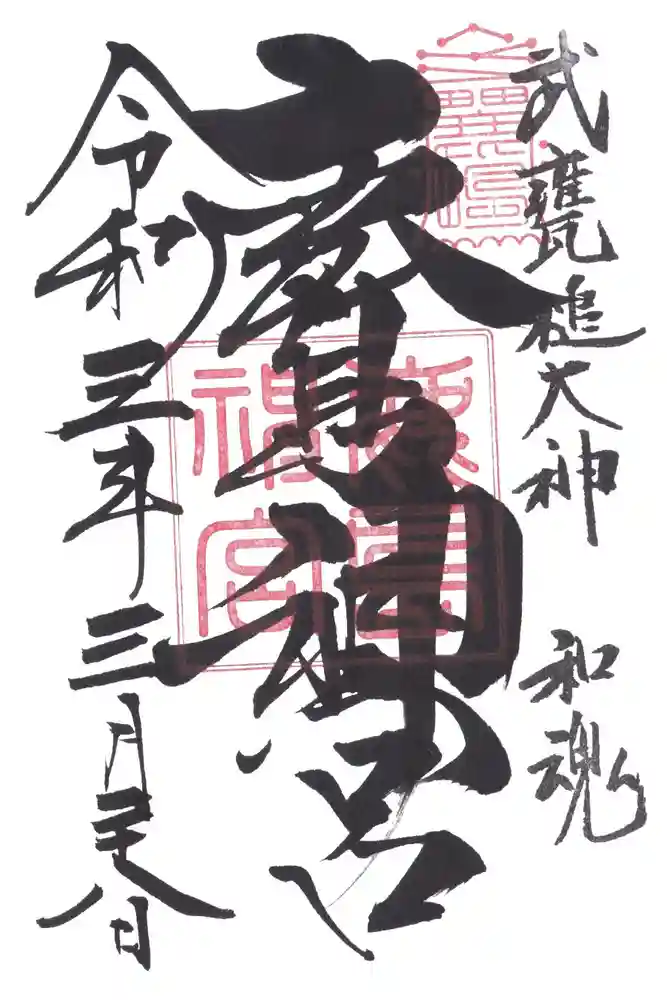 武甕槌大神 和魂
鹿島神宮
令和三年三月二十八日
鹿島
神宮